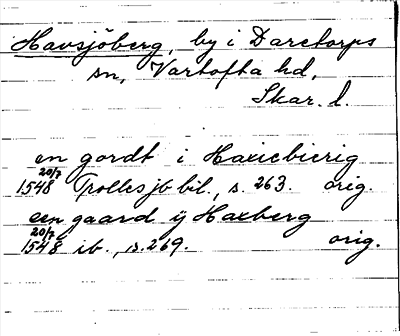 Havsjöberg, by i Daretorps
sn, Vartofta hd,
Skar. l.
en gordt i Haxiebierig
20/7
1548 Trollesjb bil., s. 263. orig.
een gaard ÿ Haxberg
20/7
1548 ib., s. 269. orig.